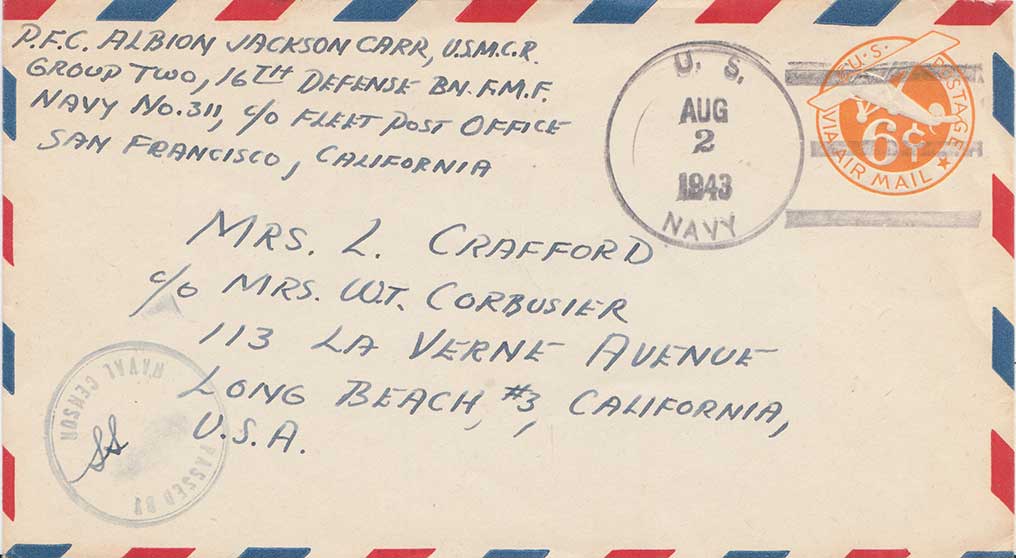 P.F.C. ALBION JACKSON CARR, U.S.M.C.R.
GROUP TWO, 16TH DEFENSE BN. F.M.F.
NAVY NO. 311, c/o FLEET POST OFFICE
SAN FRANCISCO, CALIFORNIA
U. S.
AUG
2
1943
NAVY
U.S. POSTAGE
6¢
VIA AIR MAIL
MRS. L. CRAFFORD
c/o MRS. W.T. CORBUSIER
113 LA VERNE AVENUE
LONG BEACH, #3, CALIFORNIA,
U.S.A.
PASSED BY
NAVAL CENSOR
SS